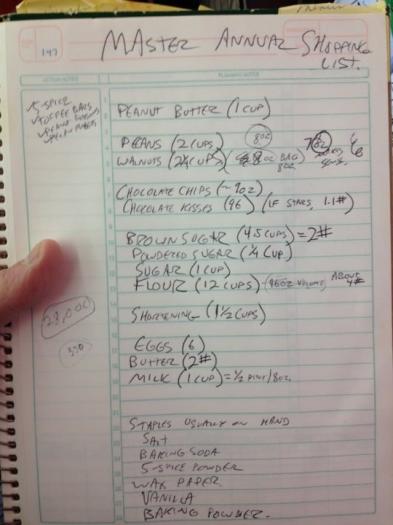 147
MASTER ANNUAL SHOPPING
LIST.
ACTION NOTES
PLANNING NOTES
5 SPICE
TOFFEE BARS
PEANUT BUTTER (1 CUP)
PECANS (2 CUPS) 8OZ
WALNUTS (2 CUPS) 8OZ BAG
8OZ
CHOCOLATE CHIPS (~9OZ)
CHOCOLATE KISSES (96) (IF STARS, 1.1#)
BROWN SUGAR (4.5 CUPS) = 2#
POWDERED SUGAR (1/4 CUP)
SUGAR (1 CUP)
FLOUR (12 CUPS) (96OZ VOLUME) ABOUT
4#
SHORTENING (1 1/2 CUPS)
28,000
EGGS (6)
BUTTER (2#)
MILK (1 CUP) = 1/2 PINT/8OZ.
STAPLES USUALLY ON HAND
SALT
BAKING SODA
5-SPICE POWDER
WAX PAPER
VANILLA
BAKING POWDER.